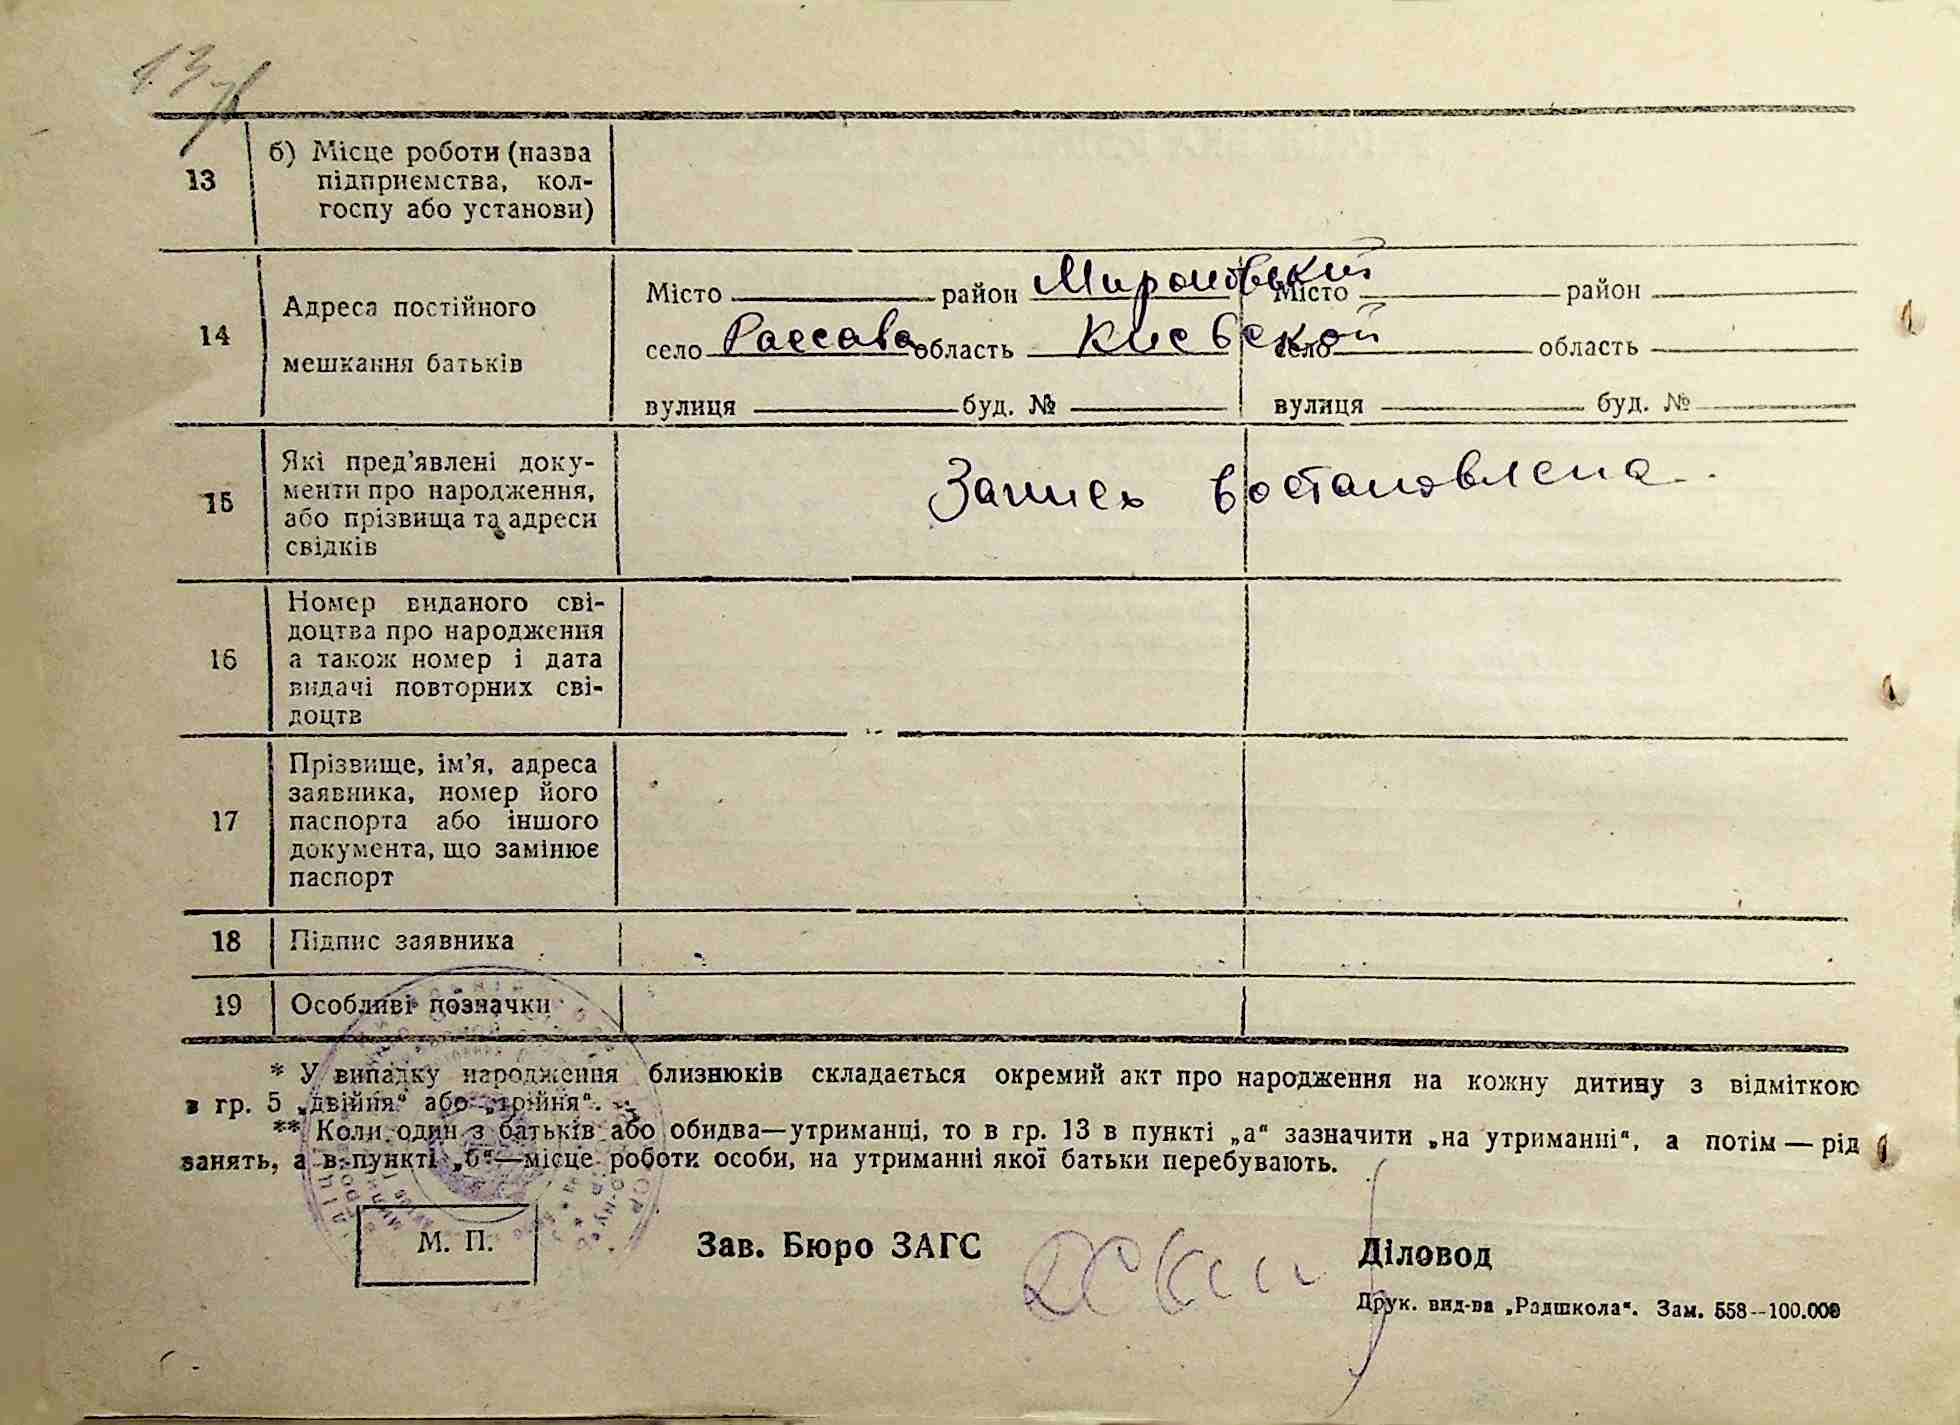 13
б) Місце роботи (назва
підприємства, кол-
госпу або установи)
14
Адреса постійного
мешкання батьків
Місто район Мироновский Місто район
село Россава область Киевской село область
вулиця буд. № вулиця буд. №
15
Які пред'явлені доку-
менти про народження,
або прізвища та адреси
свідків
Запись востановлена.
16
Номер виданого сві-
доцтва про народження
а також номер і дата
видачі повторних сві-
доцтв
17
Прізвище, ім'я, адреса
заявника, номер його
паспорта або іншого
документа, що замінює
паспорт
18 Підпис заявника
19 Особливі позначки
* У випадку народження близнюків складається окремий акт про народження на кожну дитину з відміткою
в гр. 5 „двійня“ або „трійня“.
** Коли один з батьків або обидва—утриманці, то в гр. 13 в пункті „а“ зазначити „на утриманні“, а потім — рід
занять, а в пункті „б“—місце роботи особи, на утриманні якої батьки перебувають.
М. П.
Зав. Бюро ЗАГС
Діловод
Друк. вид-ва „Радшкола“. Зам. 558—100.000